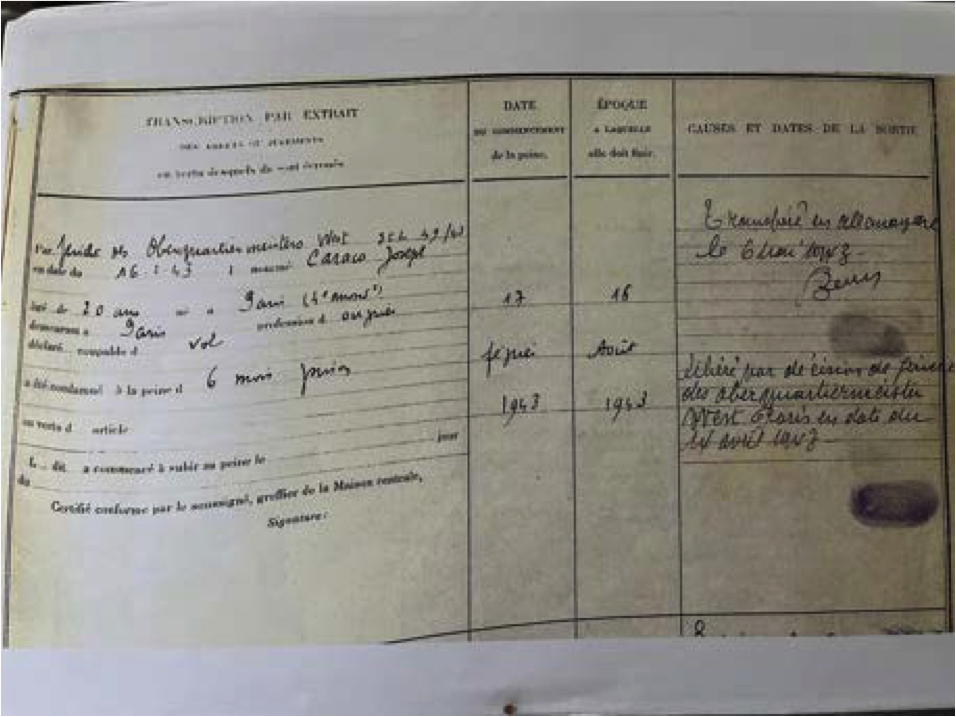 TRANSCRIPTION PAR EXTRAIT
DES ARRÊTS OU JUGEMENTS
en vertu desquels ils sont écroués.
DATE
DU COMMENCEMENT
de la peine.
ÉPOQUE
A LAQUELLE
elle doit finir.
CAUSES ET DATES DE LA SORTIE
Par des Oberquartiermeisters West
en date du 16 2 43 nommé Caraco Joseph
âgé de 20 ans né à Paris
demeurant à Paris profession d
déclaré coupable d vol
a été condamné à la peine d 6 mois prison
en vertu d article
L dit a commencé à subir sa peine le jour
du
Certifié conforme par le soussigné, greffier de la Maison centrale,
Signature:
17
1943
16
Août
1943
Transféré en allemagne
le 6 mai 1943
Libéré par décision de
des oberquartiermeister
West Paris en date du
14 avril 1943